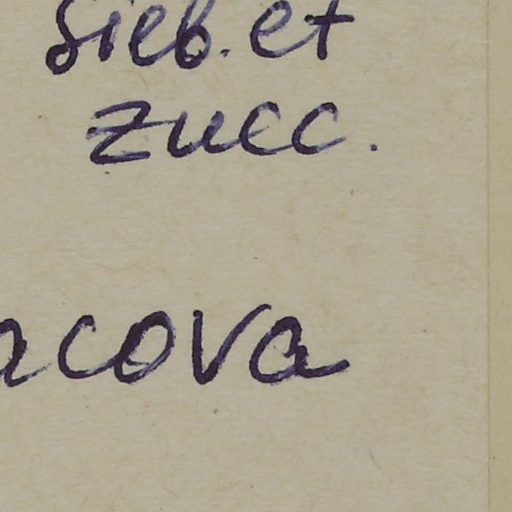 Sieb. et
Zucc.
acova